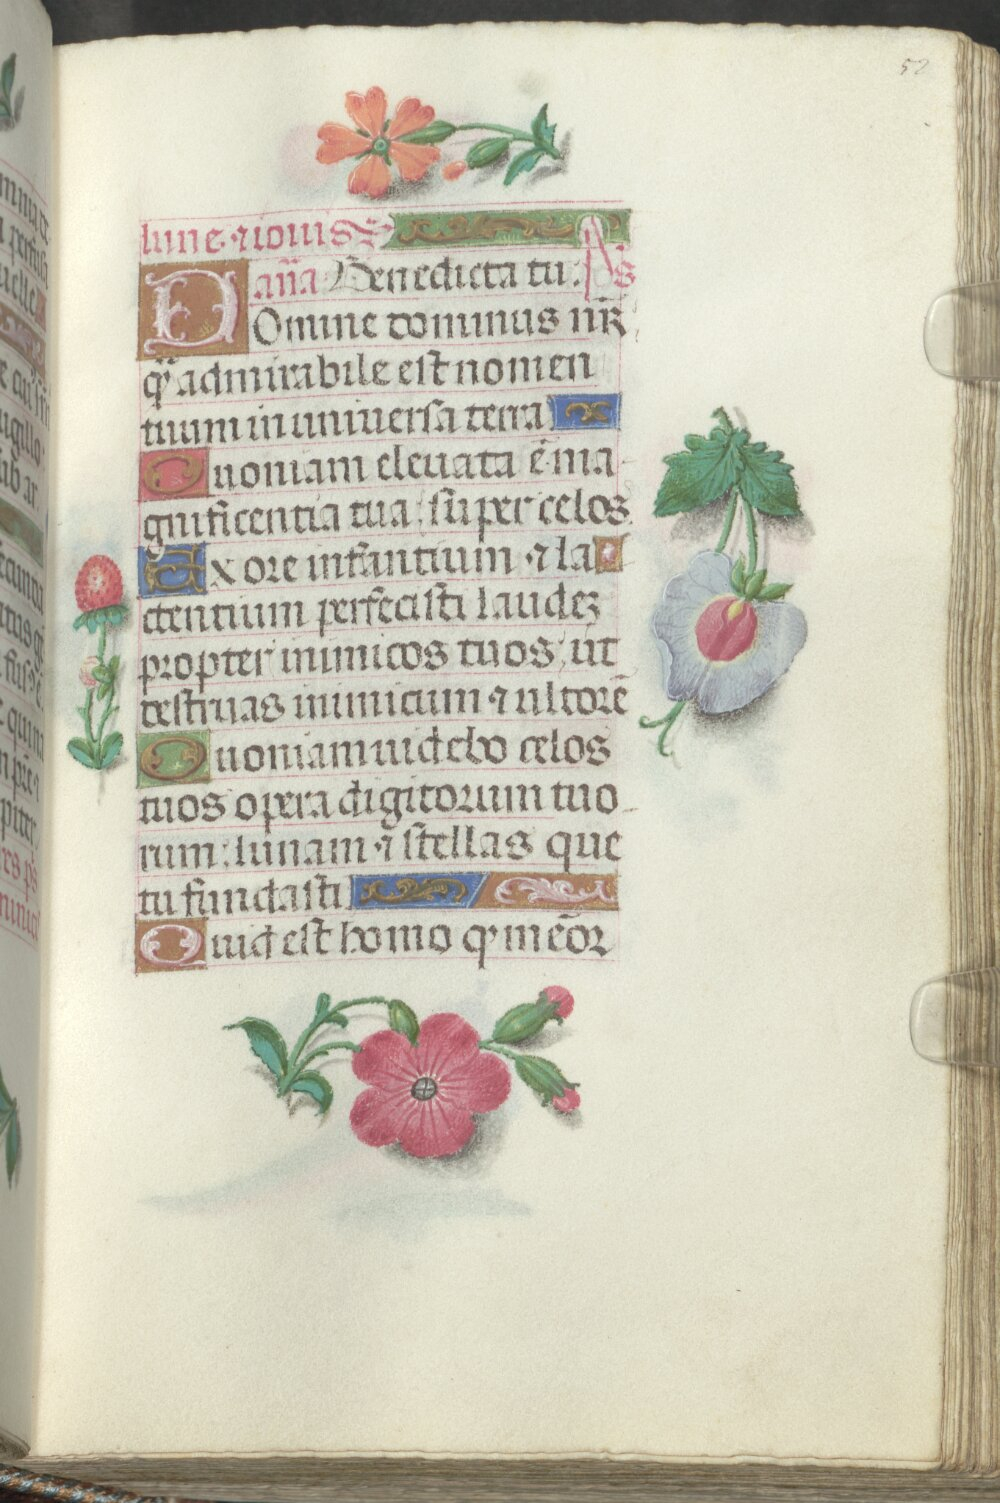 52
lune ⁊ iouis
ana͞ Benedicta tu. Ps
DOmine dominus nr̄
q̄ admirabile est nomen
tuum in uniuersa terra
Quoniam eleuata ē ma
gnificentia tua: super celos
Ex ore infantium ⁊ la
ctentium perfecisti laudeʒ
propter inimicos tuos, ut
destruas inimicum ⁊ ultorē
Quoniam uidebo celos
tuos opera digitorum tuo
rum: lunam ⁊ stellas que
tu fundasti
Quid est homo qꝫ mēor